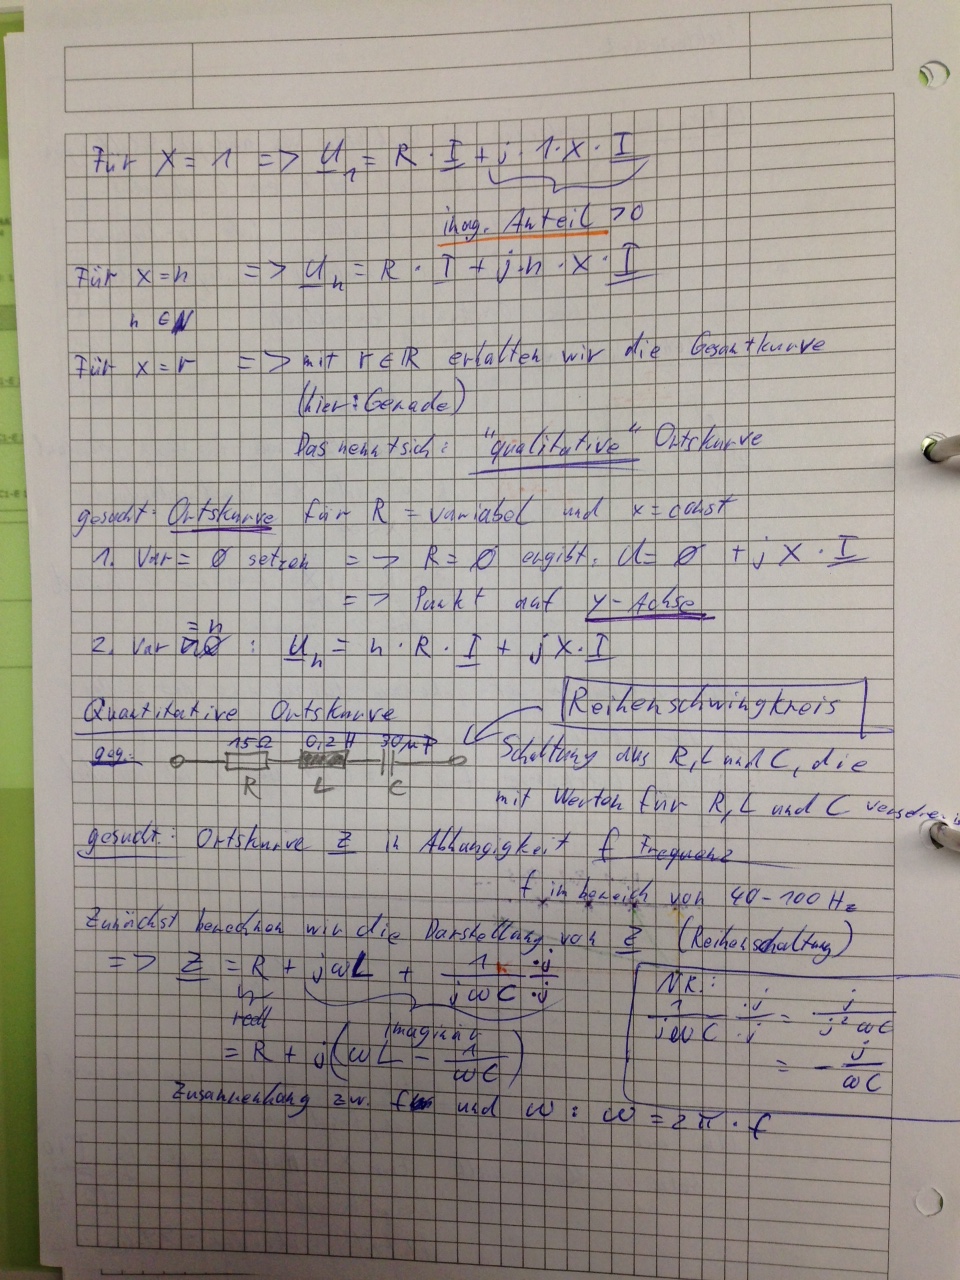 Für X = 1 => U₁ = R · I + j · 1 · X · I
imag. Anteil > 0
Für x = n => Uₙ = R · I + j · n · X · I
n ∈ N
Für x = r => mit r ∈ R erhalten wir die Gesamtkurve
(hier: Gerade)
Das nennt sich: "qualitative" Ortskurve
gesucht: Ortskurve für R = variabel und x = const
1. Var = 0 setzen => R = 0 ergibt: U = 0 + j X · I
=> Punkt auf y-Achse
= n
2. Var : Uₙ = n · R · I + j X · I
Reihenschwingkreis
Quantitative Ortskurve
geg.: 15Ω 0,2 H 30µF
R L C
Schaltung aus R, L und C, die
mit Werten für R, L und C
gesucht: Ortskurve Z in Abhängigkeit f Frequenz
f im bereich von 40-100 Hz
Zunächst berechnen wir die Darstellung von Z (Reihenschaltung)
=> Z = R + jωL + 1/(jωC) · j/j
reell
imaginär
= R + j(ωL - 1/(ωC))
NR.:
1/(jωC) · j/j = j/(j² ωC)
= - j/(ωC)
Zusammenhang zw. f und ω : ω = 2π · f